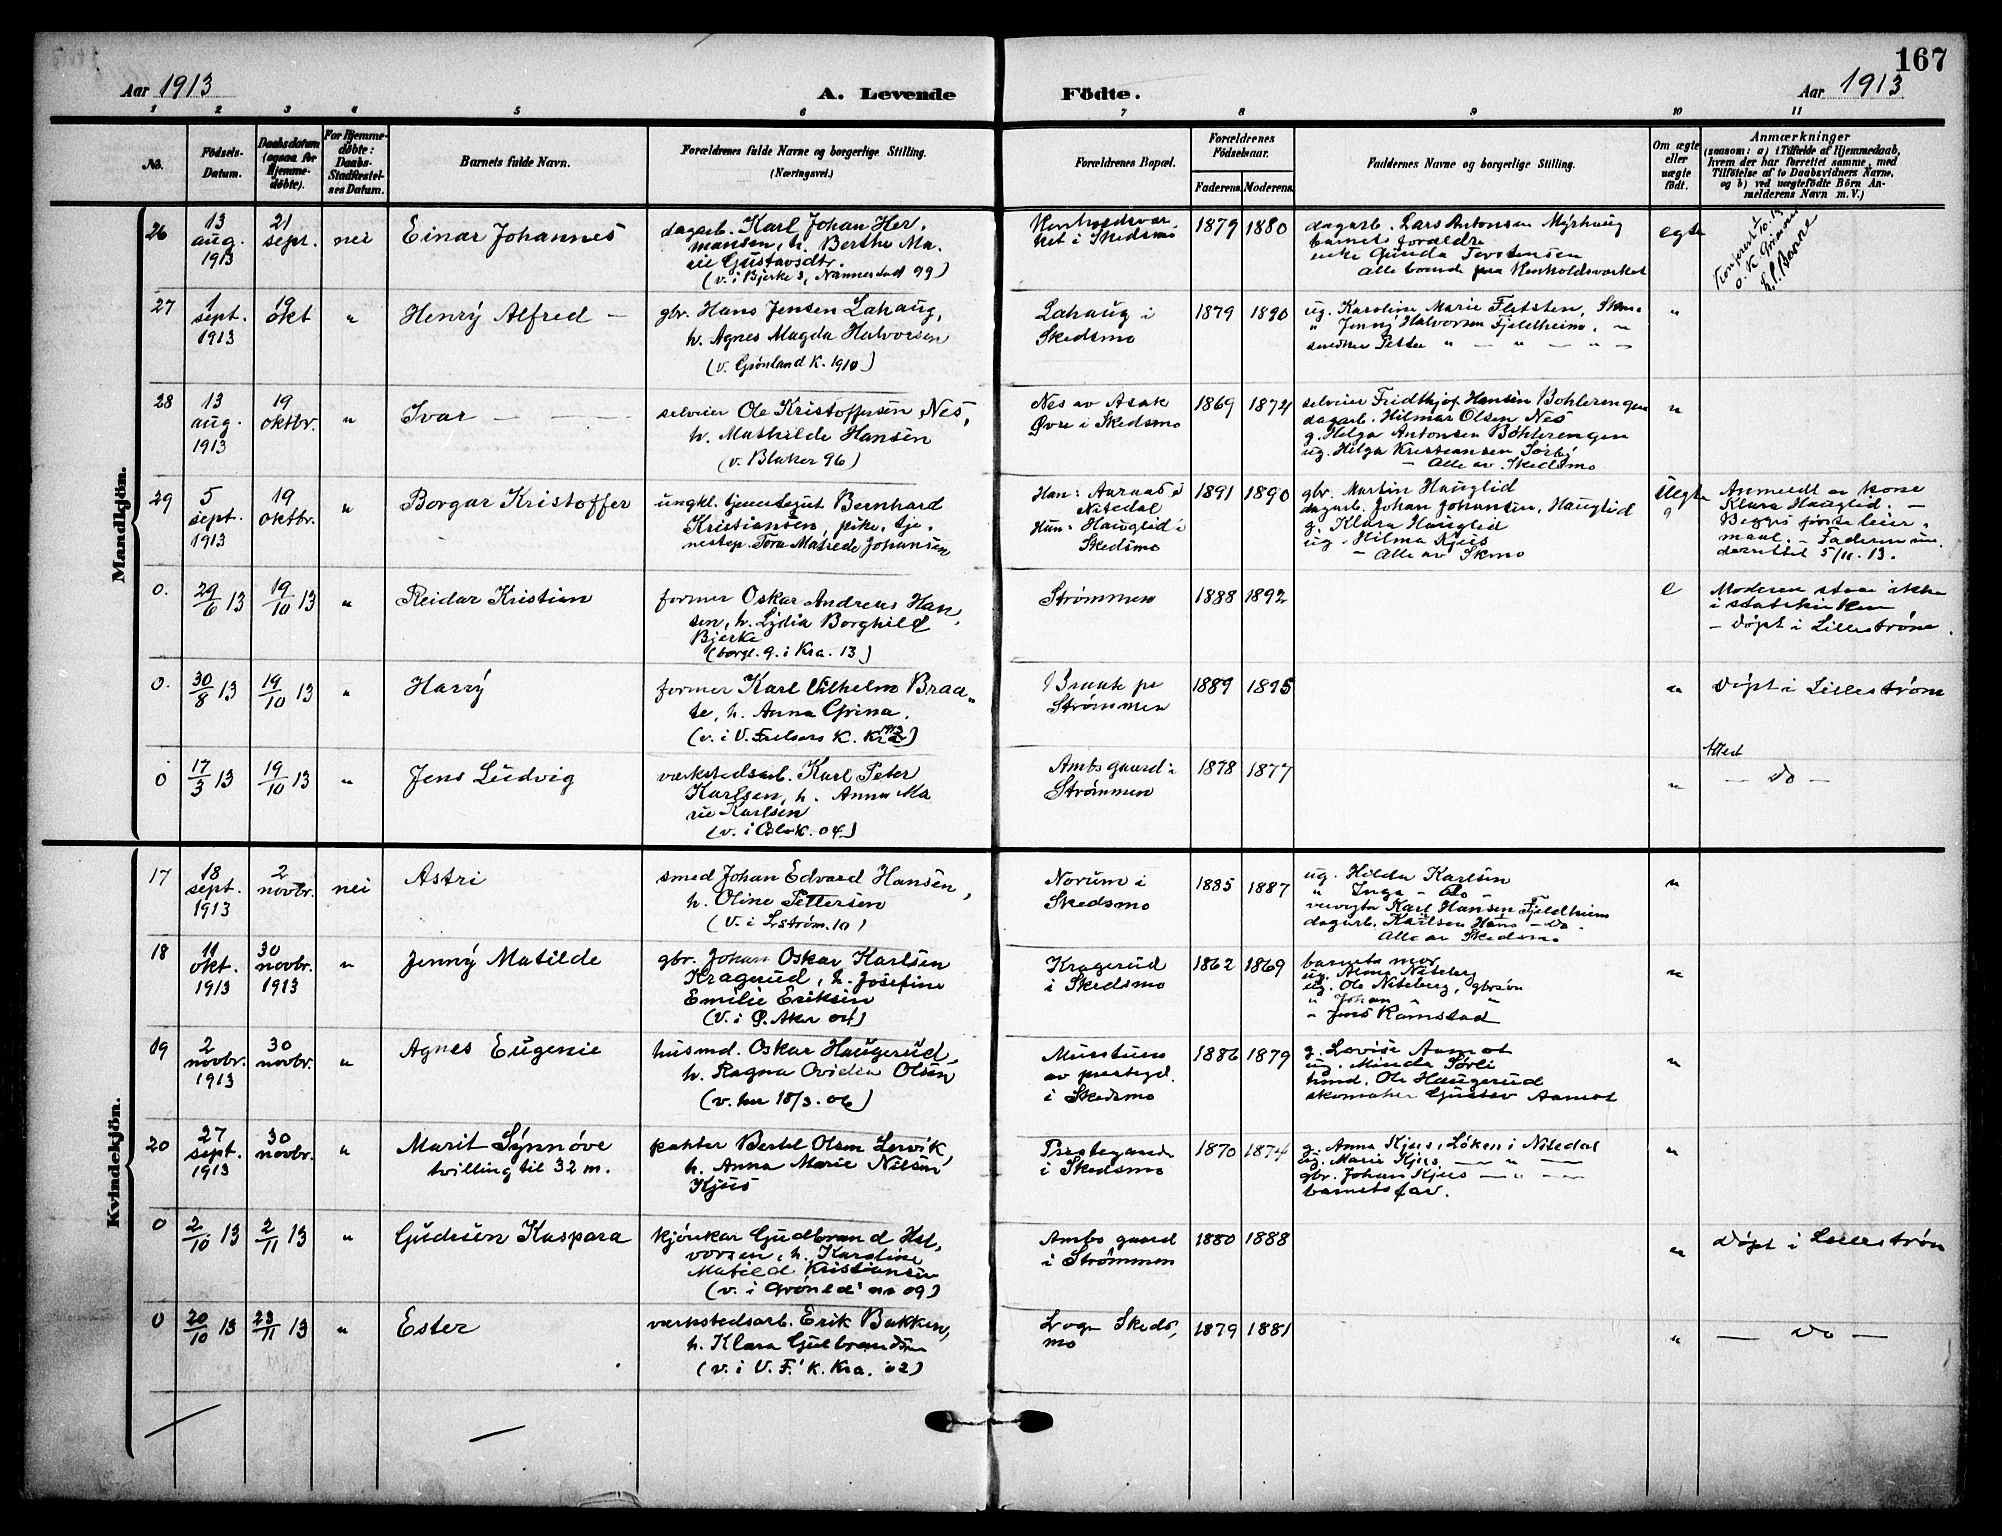 167
Aar 1913
A. Levende Födte.
Aar 1913
1 2 3 4 5 6 7 8 9 10 11
No.
Födsels-Datum.
Daabsdatum (ogsaa for Hjemmedöbte).
For Hjemmedöbte: Daabs-Stadfestelses Datum.
Barnets fulde Navn.
Forældrenes fulde Navne og borgerlige Stilling.
(Næringsvei.)
Forældrenes Bopæl.
Forældrenes Födselsaar.
Faderens. Moderens.
Faddernes Navne og borgerlige Stilling.
Om ægte eller uægte födt.
Anmærkninger
(saasom: a) i Tilfælde af Hjemmedaab, hvem der har forrettet samme, med Tilföielse af to Daabsvidners Navne, og b) ved uægtefödte Börn Anmelderens Navn m. V.)
Mandkjön.
26 13 aug. 1913 21 sept. nei Einar Johannes
dagarb. Karl Johan Hermansen, h. Berthe Marie Gustavsdtr.
(v. i Bjerke s, Nannestad 99)
i Skedsmo 1879 1880
dagarb. Lars Antonsen Myrhaug
barnets forældre
enke Gunda Torstensen
alle boende paa Henholdsverket
egte
27 1 sept. 1913 19 okt " Henrÿ Alfred —
gbr. Hans Jensen Lahaug,
h. Agnes Magda Halvorsen
(v. Grønland K. 1910)
Lahaug i Skedsmo 1879 1890
ug. Karoline Marie Fletsten, Skm.
" Jenny Halvorsen Fjeldheim, "
snedker Petter " — " — " —
"
28 13 aug. 1913 19 oktbr. " Ivar —
selveier Ole Kristoffersen Nes,
h. Mathilde Hansen
(v. Blaker 96)
Nes av Asak Øvre i Skedsmo 1869 1874
selveier Fridthjof Hansen Bøhlerengen
dagarb. Hilmar Olsen Nes
g. Helga Antonsen Bøhlerengen
ug. Helga Kristiansen Sørby
— Alle av Skedsmo
"
29 5 sept. 1913 19 oktbr. " Borgar Kristoffer
ungkl. tjenestegut Bernhard
Kristiansen, pike, tje-
nestep. Tora Matrede Johansen
Han: Aaraas i Nitedal
Hun: Hauglid i Skedsmo
1891 1890
gbr. Martin Hauglid
dagarb. Johan Johansen, Hauglid
g. Klara Hauglid
ug. Hilma Kjus
— Alle av Skmo
Uegte
Anmeldt av kone
Klara Hauglid. —
Begges første leiermaal. — Faderen underrettet 5/11. 13.
0. 29/6 13 19/10 13 " Reidar Kristian
former Oskar Andreas Hansen, h. Lydia Borghild
Bjerke
(borgl. g. i Kra. 13)
Strømmen 1888 1892
e
Moderen staar ikke
i statskirken
— Døpt i Lillestrøm.
0. 30/8 13 19/10 13 " Harrÿ
former Karl Vilhelm Braate, h. Anna Grina.
(v. i V. Frelsers K. Kra 1913)
Braate pr Strømmen 1889 1895
" Døpt i Lillestrøm
0 17/3 13 19/10 13 " Jens Ludvig
værkstedsarb. Karl Peter
Karlsen, h. Anna Marie Karlsen
(v. i Oslo K. 04)
Ambs gaard i Strømmen 1878 1877
"
— Do —
Kvindekjön.
17 18 sept. 1913 2 novbr. nei Astri
smed Johan Edvard Hansen,
h. Oline Pettersen
(v. i Lstrøm. 10)
Norum i Skedsmo 1885 1887
ug. Hilda Karlsen
" Inga — Do —
Karl Hansen Fjeldheim
dagarb. Karlsen Hans — Do.
Alle av Skedsmo
"
18 11 okt. 1913 30 novbr. 1913 " Jennÿ Matilde
gbr. Johan Oskar Karlsen
Kragerud, h. Josefine
Emilie Eriksen
(v. i Ø. Aker 04)
Kragerud i Skedsmo 1862 1869
barnets mor
ug. Alma Niteberg
ug. Ole Niteberg, gbrsøn
" Johan " "
" Jens Ramstad
"
19 2 novbr. 1913 30 novbr. " Agnes Eugenie
husmd. Oskar Haugerud,
h. Ragna Ovidia Olsen
(v. her 18/3. 06)
av prestegd. i Skedsmo 1886 1879
g. Lovise Aamot
ug. Minda Sørli
hmd. Ole Haugerud
skomaker Gustav Aamot
"
20 27 sept. 1913 30 novbr. " Marit Sÿnnøve
tvilling til 32 m.
pakter Bertel Olsen Lervik,
h. Anna Marie Nilsen
Kjus
Prestegaarden i Skedsmo 1870 1874
g. Anna Kjus, Løken i Nitedal
ug. Marie Kjus — " —
gbr. Johan Kjus — " —
barnets far.
"
0 2/10 13 2/11 13 " Gudrun Kaspara
kjørekar Gudbrand Halvorsen, h. Karoline
Matild Kristiansen
(v. i Grønld 09)
Ambs gaard i Strømmen 1880 1888
" Døpt i Lillestrøm
0 20/10 13 23/11 13 " Ester
værkstedsarb. Erik Bakken,
h. Klara Gulbrandsen
(v. i V. F. K. Kra. 02)
Skedsmo 1879 1881
" — Do —